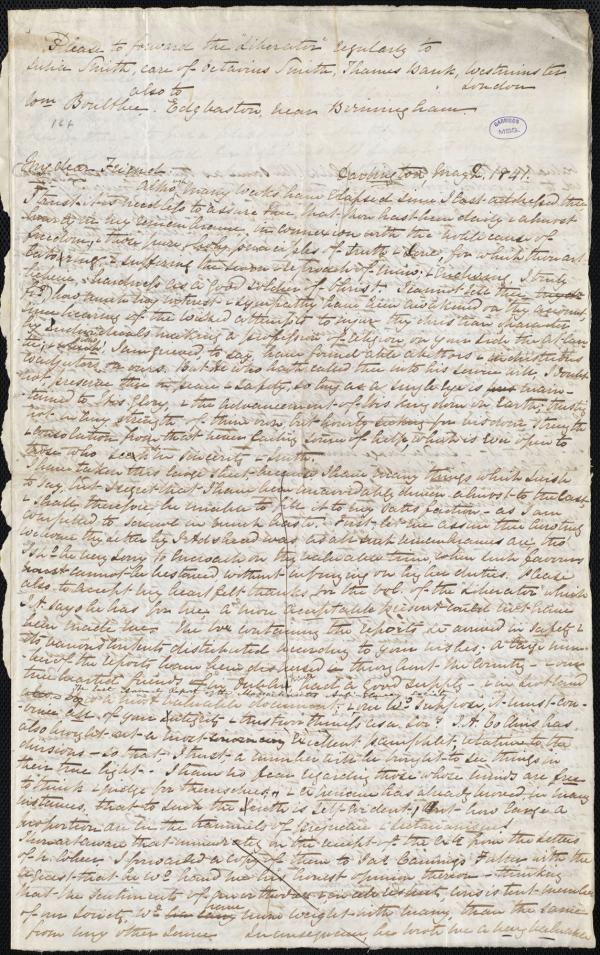 Please to forward the "Liberator" regularly to
Julia Smith, care of Octavius Smith, Thames Bank, Westminster
London
also to
Wm Boultbee. Edgbaston, near Birmingham.
GARRISON
My dear Friend
Darlington, May 2, 1841.
altho' many weeks have elapsed since I last addressed thee
I trust it is needless to assure thee, that thou hast been daily & almost
hourly in my remembrance, in connexion with the noble cause of
freedom, & those pure & holy principles of truth & love, for which thou art
&c suffering the reproach of men, & enduring, I truly
believe, hardness as a good soldier of Christ. I cannot tell thee
how much my interest & sympathy have been awakened on thy account,
since hearing of the wicked attempts to injure thy christian character
by individuals making a profession of religion on your side the Atlan-
tic, & which, I am grieved to say, have found able abettors & industrious
on ours. But He who hath called thee into his service will, I doubt
not, preserve thee in peace & safety, so long as a single eye is main-
tained to His glory, & the advancement of His kingdom on Earth; trusting
not in any strength of thine own, but hourly for wisdom, strength
& consolation from that never failing source of help, which is ever open to
those who seek in sincerity & faith.
I have taken this large sheet because I have many things which I wish
to say, but I regret that I have been unavoidably driven almost to the last,
& shall therefore be unable to fill it to my satisfaction - as I am
compelled to scrawl in much haste. First let me assure thee another
welcome thy letter by J. Adshead was, as all such remembrances are, tho'
I shd be very sorry to encroach on thy valuable time, when such favours
cannot be bestowed without infringing on higher duties. Please
also to accept my heartfelt thanks for the vol. of the Liberator which
J.A. says he has for me, a more acceptable present could not have
been made me. The box containing the reports &c arrived in safety &
its various contents distributed according to your wishes; a large num-
ber of the reports have been dispersed in throughout the country - & our
true hearted friends of Dublin had a good supply - & in Scotland
The last Annual Report of the Massachusetts Anti-Slavery Society
also. is a most valuable document; & one wd suppose, it must con-
vince all of your integrity & trustworthiness as a Socy. J.A. Collins has
also brought out a most excellent pamphlet, relative to the
divisions - so that, I trust a number will be brought to see things in
their true light - I have no fear regarding those whose minds are free
to think & judge for themselves, & experience has already proved in many
instances, that to such the truth is self-evident; but how large a
proportion are in the trammels of prejudice & sectarianism!
Thou art aware that immediately on the receipt of the from the letters
of N. Colver I forwarded a copy of them to Jas Cannings Fuller with the
request that he wd hand me his honest opinion thereon - thinking
that the sentiments of one consistent member
of our Society, wd have more weight with many, than the same
from any other source. In consequence, he wrote me a very valuable